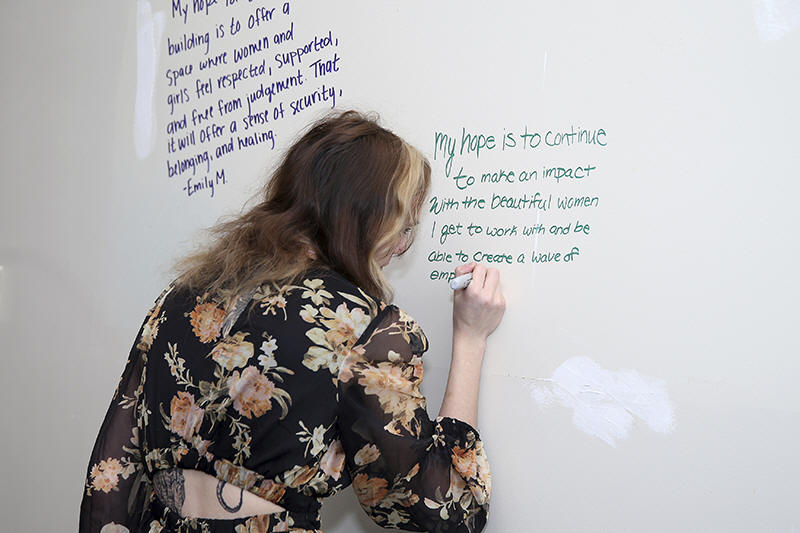 My hope for
building is to offer a
space where women and
girls feel respected, supported,
and free from judgement. That
it will offer a sense of security,
belonging, and healing.
-Emily M.
My hope is to continue
to make an impact
With the beautiful women
I get to work with and be
able to create a wave of